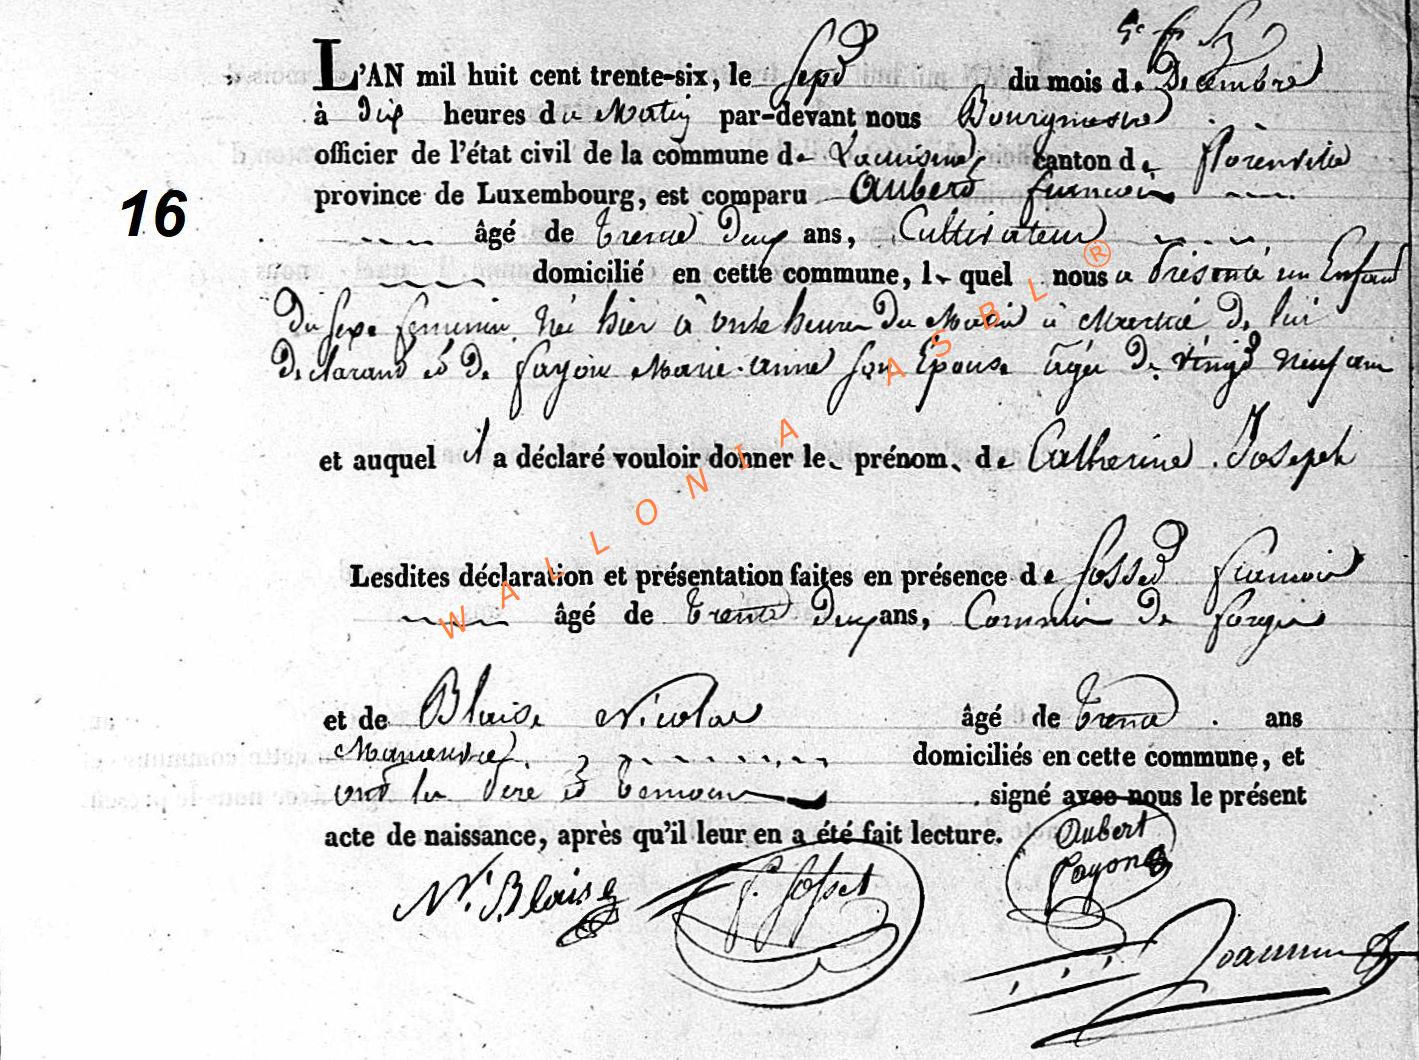 L'AN mil huit cent trente-six, le sept du mois de Decembre
à dix heures du Matin par-devant nous Bourgmestre
officier de l'état civil de la commune de canton de florenville
province de Luxembourg, est comparu Aubert francois
âgé de trente deux ans, Cultivateur
16
domicilié en cette commune, le quel nous a Présenté un Enfant
Du sexe feminin Né hier à onze heures Du Matin à De lui
Declarant et De Payon Marie-Anne son Epouse agée De vingt neuf ans
et auquel il a déclaré vouloir donner le prénom de Catherine Joseph
Lesdites déclaration et présentation faites en présence de Josset francois
âgé de trente Deux ans, Commis De forges
et de Blaise Nicolas âgé de trente ans
Manœuvre domiciliés en cette commune, et
ont les Pere et temoins signé avec nous le présent
acte de naissance, après qu'il leur en a été fait lecture.
Aubert
Payon
N. Blaise
Josset
WALLONIA ASBL ®